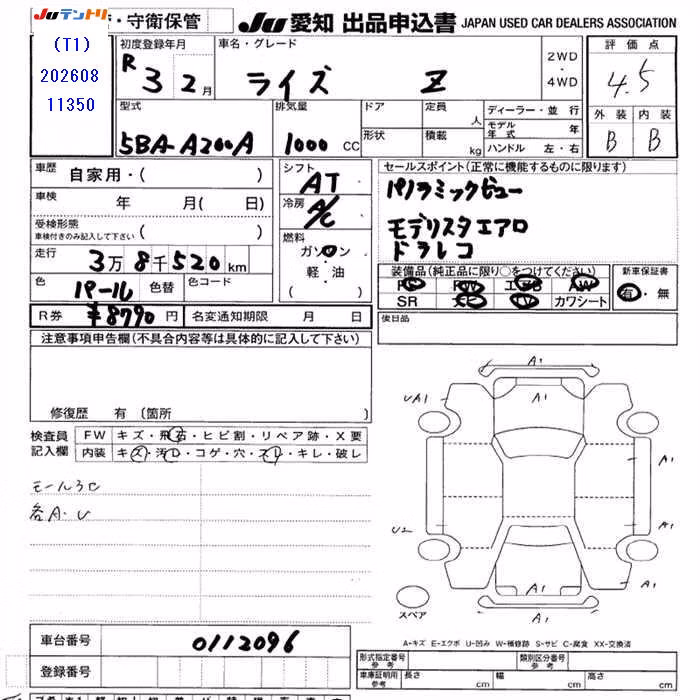 Juテントリ ・守衛保管 JU 愛知 出品申込書 JAPAN USED CAR DEALERS ASSOCIATION
(T1)
202608
11350
初度登録年月 車名・グレード 2WD・4WD 評価点
R 3 2月 ライズ Z 4.5
型式 排気量 ドア 定員 人 ディーラー・並行 外装 内装
5BA-A200A 1000 CC 形状 積載 kg モデル年式 年 B B
ハンドル 左・右
車歴 自家用・( ) シフト AT セールスポイント(正常に機能するものに限ります)
車検 年 月( 日) 冷房 A/C パノラミックビュー
受検形態 車検付きのみ記入して下さい ( ) 燃料 モデリスタエアロ
走行 3万8千520km ガソリン ドラレコ
軽・油
( )
色 パール 色替 色コード 装備品(純正品に限り○をつけてください) 新車保証書
PS PW エアB AW 有・無
SR ナビ TV カワシート
R券 ¥8790円 名変通知期限 月 日 後日品
注意事項申告欄(不具合内容等は具体的に記入して下さい)
修復歴 有(箇所 )
検査員記入欄 FW キズ・飛石・ヒビ割・リペア跡・X要
内装 キズ・汚レ・コゲ・穴・スレ・キレ・破レ
モールうC
各A・U
A1
UA1 A1
A1
U2 A1
A1 A1
A1
スペア
A-キズ E-エクボ U-凹み W-補修跡 S-サビ C-腐食 XX-交換済
車台番号 0112096
登録番号
形式指定番号 参考 類別区分番号 参考
車庫証明用 参考 長さ cm 幅 cm 高さ cm